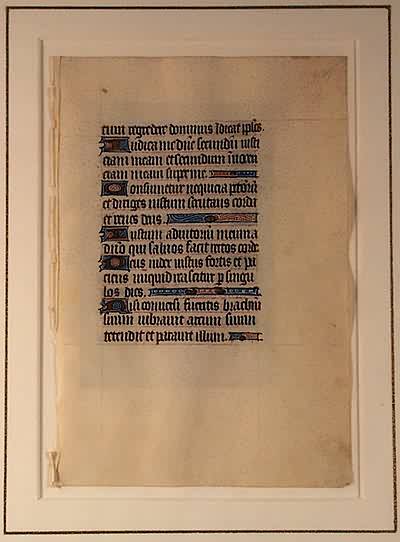 tum regredere dominus iudicat pp̄los.
Iudica me dn̄e secundū iusti
ciam meam et secundum inocen
ciam meam super me.
Consumetur nequicia pctōꝝ
et diriges iustum scrutans corda
et renes deus.
Iustum adiutoriū meum a
dn̄o qui saluos facit rectos corde.
Deus iudex iustus fortis et pa
ciens nūquid irascitur ꝑ singu
los dies.
Nisi conuersi fueritis
suum uibrauit arcum suum
tetendit et parauit illum.